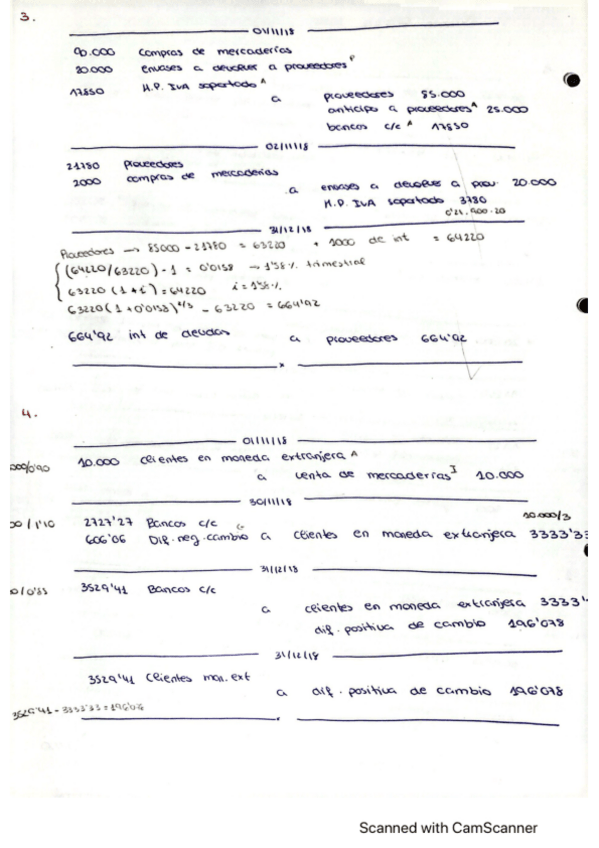 3.
01/11/18
90.000 compras de mercaderías
20.000 envases a devolver a proveedores P
17850 H.P. IVA soportado A
a proveedores 85.000
anticipo a proveedores A 25.000
bancos c/c A 17850
02/11/18
21780 proveedores
2000 compras de mercaderias
a envases a devolver a prov. 20.000
H.P. IVA soportado 3780
0'21.900.20
31/12/18
Proveedores → 85000 - 21780 = 63220 + 1000 de int = 64220
(64220/63220) - 1 = 0'0158 → 1'58% trimestral
63220 (1+i) = 64220 i = 1'58%
63220 (1 + 0'0158)^2/3 - 63220 = 664'92
664'92 int de deudas a proveedores 664'92
x
4.
01/11/18
000/0'90 10.000 clientes en moneda extranjera A
a venta de mercaderías I 10.000
30/11/18
10.000/3
00 / 1'10 2727'27 Bancos c/c
606'06 Dif. neg. cambio G a clientes en moneda extranjera 3333'33
31/12/18
0/0'85 3529'41 Bancos c/c
a clientes en moneda extranjera 3333'
dif. positiva de cambio 196'078
31/12/18
3529'41 clientes mon. ext
a dif. positiva de cambio 196'078
3529'41 - 3333'33 = 196'08
Scanned with CamScanner